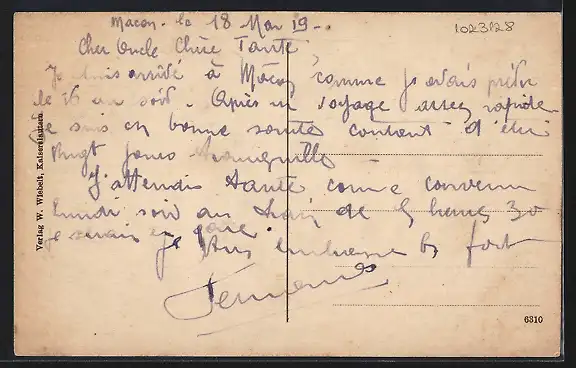 Macon. le 18 Mai 19-.
1023128
Cher Oncle Chère Tante
Je suis arrivé à Mâcon comme je avais prévu
le 16 au soir. Après un voyage assez rapide
Je suis en bonne santé content d'être
Vingt jours tranquille
J'attendis tante come convenu
Lundi soir au train de 5 heures 30
je serais en gare.
Je vous embrasse bs fort
Verlag W. Wiebelt, Kaiserslautern
6310